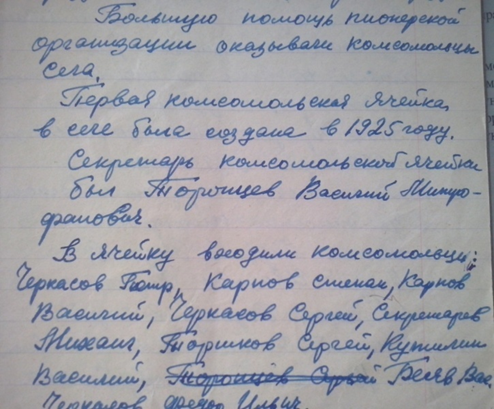 Большую помощь пионерской
организации оказывали комсомольцы
села.
Первая комсомольская ячейка
в селе была создана в 1925 году.
Секретарь комсомольской ячейки
был Торопцев Василий Митро-
фанович.
В ячейку входили комсомольцы:
Черкасов Петр, Карпов степан, Карпов
Василий, Черкасов Сергей, Секретарев
Михаил, Торшков Сергей, Кутилин
Василий, Торопцев Сергей Беляв Вас
Черкасов Ильич.